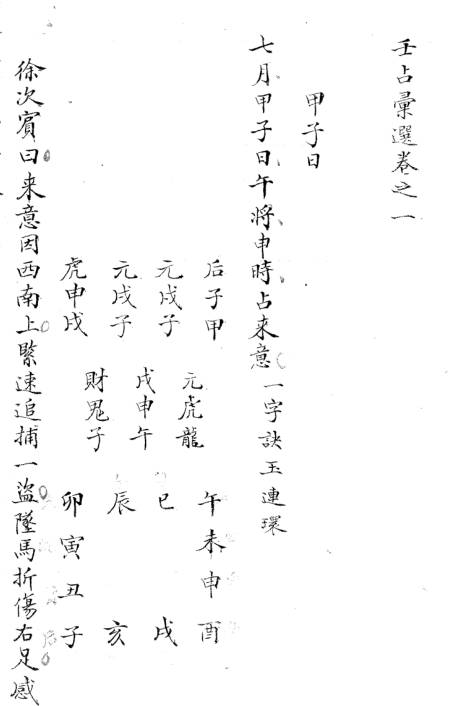 壬占彙選卷之一
甲子日
七月甲子日午將申時占來意一字訣玉連環
后子甲
元戌子
元戌子
虎申戌
元虎龍
戌申午
財鬼子
午未申酉
巳 戌
辰 亥
卯寅丑子
徐次賓曰来意因西南上緊速追捕一盜墜馬折傷右足感